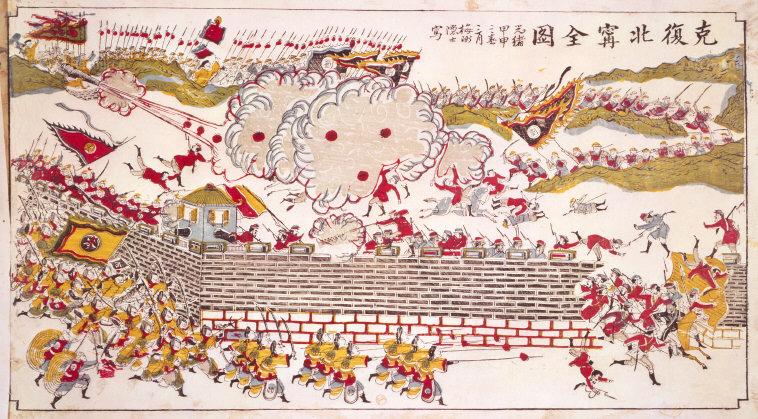 克復北寧全圖
光緒
甲申
三月
寫